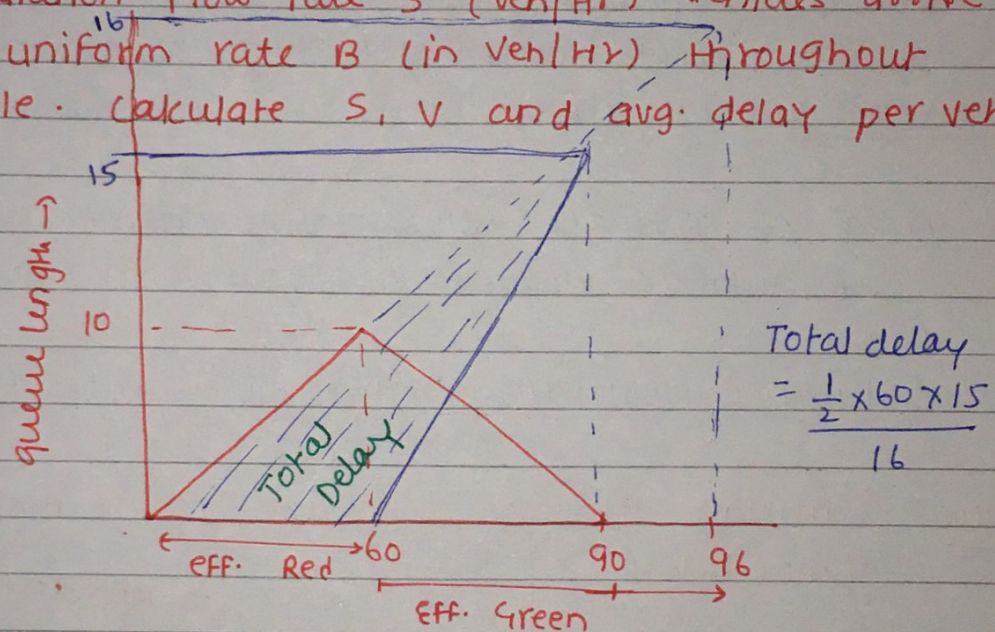 16
uniform rate B (in veh/Hr) throughout
le. calculate S, V and avg. delay per veh
15
queue length →
10
Total
Delay
Total delay
= 1/2 × 60 × 15
16
60
90
96
eff. Red
Eff. Green